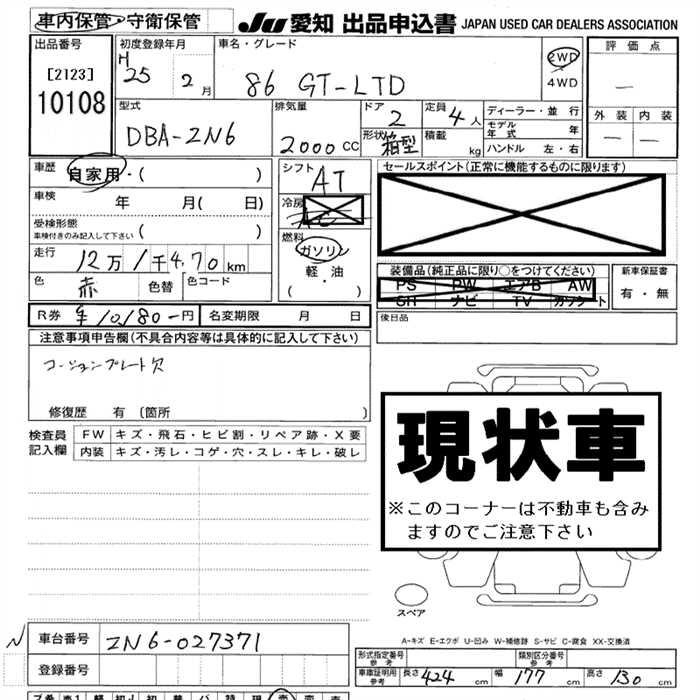 車内保管・守衛保管
JU 愛知 出品申込書 JAPAN USED CAR DEALERS ASSOCIATION
出品番号 初度登録年月 車名・グレード 評価点
[2123] H 25 2月 86 GT-LTD 2WD ―
10108 4WD
外装 内装
型式 排気量 ドア 定員 ディーラー・並行
DBA-ZN6 2000cc 2 4人 モデル年式 年 ― ―
形状 箱型 積載 kg ハンドル 左・右
車歴 自家用・( ) シフト AT セールスポイント(正常に機能するものに限ります)
車検 年 月( 日) 冷房 AC
受検形態
車検付きのみ記入して下さい ( ) 燃料
走行 12万1千470km ガソリン
軽・油
( ・ )
装備品(純正品に限り○をつけてください) 新車保証書
PS PW エアB AW 有・無
SH ナビ TV カワシート
色 赤 色替 色コード
後日品
R券 ¥10,180-円 名変期限 月 日
注意事項申告欄(不具合内容等は具体的に記入して下さい)
コーションプレート欠
修復歴 有 〔箇所 〕
検査員 FW キズ・飛石・ヒビ割・リペア跡・X要
記入欄 内装 キズ・汚レ・コゲ・穴・スレ・キレ・破レ
現状車
※このコーナーは不動車も含み
ますのでご注意下さい
スペア
A-キズ E-エクボ U-凹み W-補修跡 S-サビ C-腐食 XX-交換済
N 車台番号 ZN6-027371
登録番号
形式指定番号 参考 類別区分番号 参考
車庫証明用 参考 長さ 424cm 幅 177cm 高さ 130cm